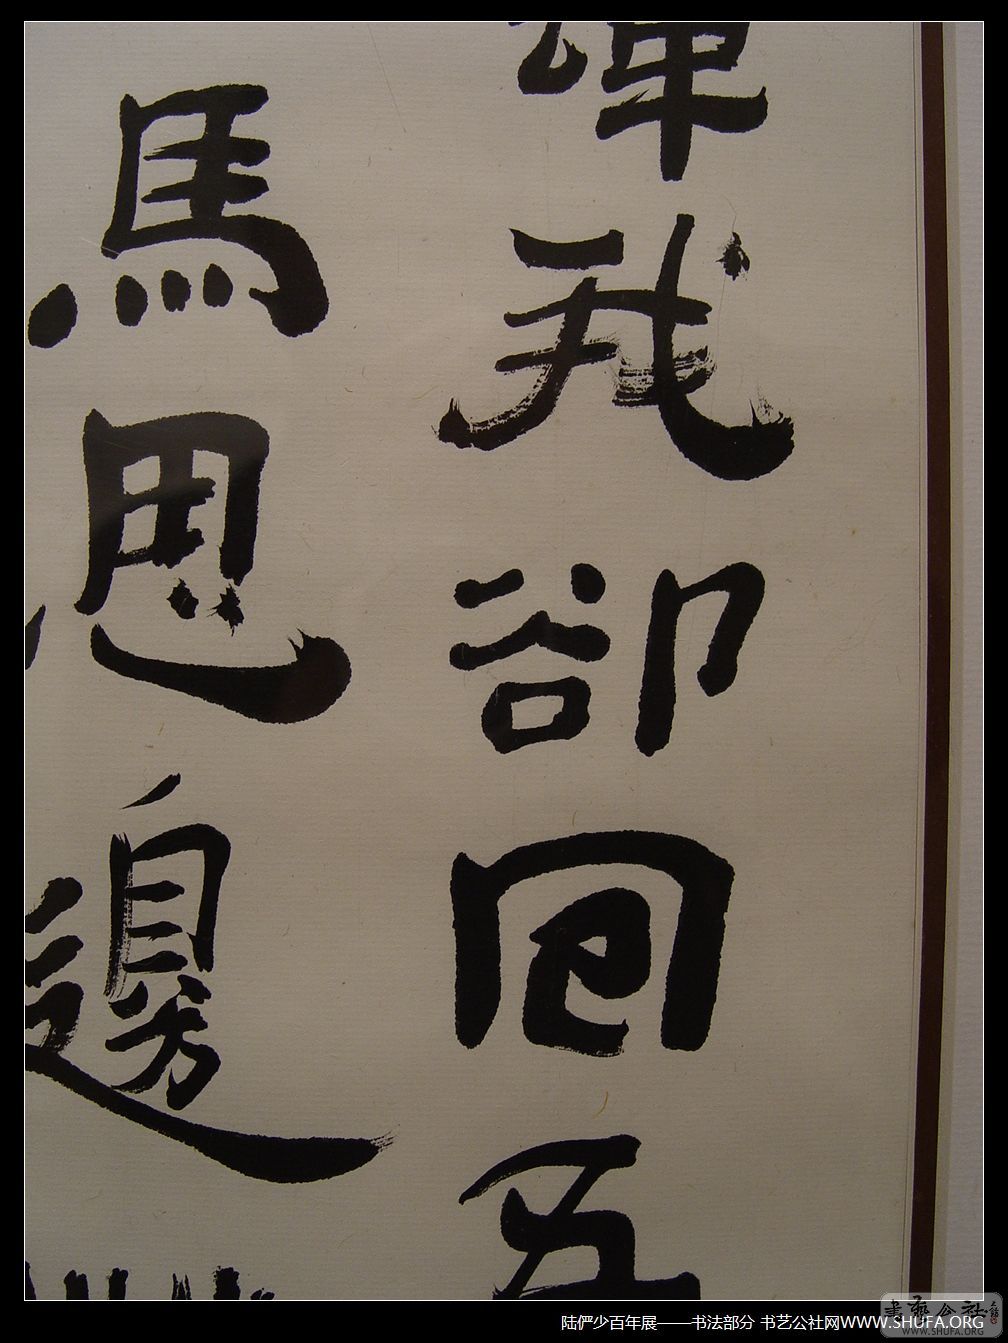 我卻囘五
馬思邊
陆俨少百年展——书法部分 书艺公社网WWW.SHUFA.ORG
書藝公社
WWW.SHUFA.ORG